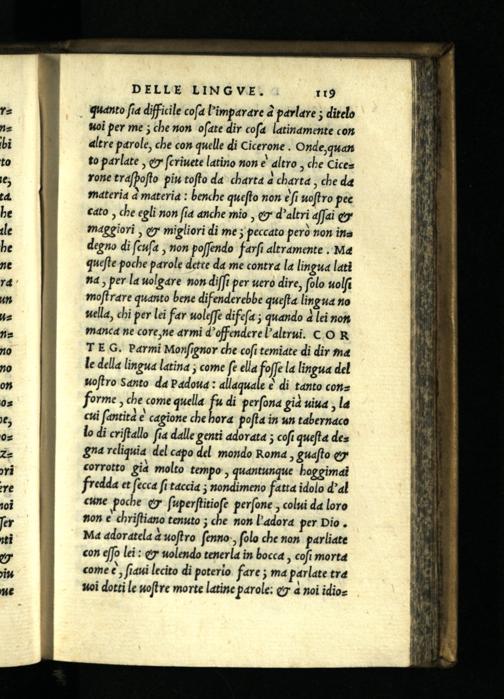 DELLE LINGVE. 119
quanto sia difficile cosa l'imparare à parlare; ditelo
uoi per me; che non osate dir cosa latinamente con
altre parole, che con quelle di Cicerone. Onde, quan
to parlate, & scriuete latino non è altro, che Cice=
rone trasposto piu tosto da charta à charta, che da
materia à materia: benche questo non è sì uostro pec
cato, che egli non sia anche mio, & d'altri assai &
maggiori, & migliori di me; peccato però non in=
degno di scusa, non possendo farsi altramente. Ma
queste poche parole dette da me contra la lingua lati
na, per la uolgare non dissi per uero dire, solo uolsi
mostrare quanto bene difenderebbe questa lingua no
uella, chi per lei far uolesse difesa; quando à lei non
manca ne core, ne armi d'offendere l'altrui. COR
TEG. Parmi Monsignor che cosi temiate di dir ma
le della lingua latina; come se ella fosse la lingua del
uostro Santo da Padoua: allaquale è di tanto con=
forme, che come quella fu di persona già uiua, la
cui santità è cagione che hora posta in un tabernaco
lo di cristallo sia dalle genti adorata; cosi questa de=
gna reliquia del capo del mondo Roma, guasto &
corrotto già molto tempo, quantunque hoggimai
fredda et secca si taccia; nondimeno fatta idolo d'al
cune poche & superstitiose persone, colui da loro
non è christiano tenuto; che non l'adora per Dio.
Ma adoratela à uostro senno, solo che non parliate
con esso lei: & uolendo tenerla in bocca, cosi morta
come è, siaui lecito di poterio fare; ma parlate tra
uoi dotti le uostre morte latine parole: & à noi idio=